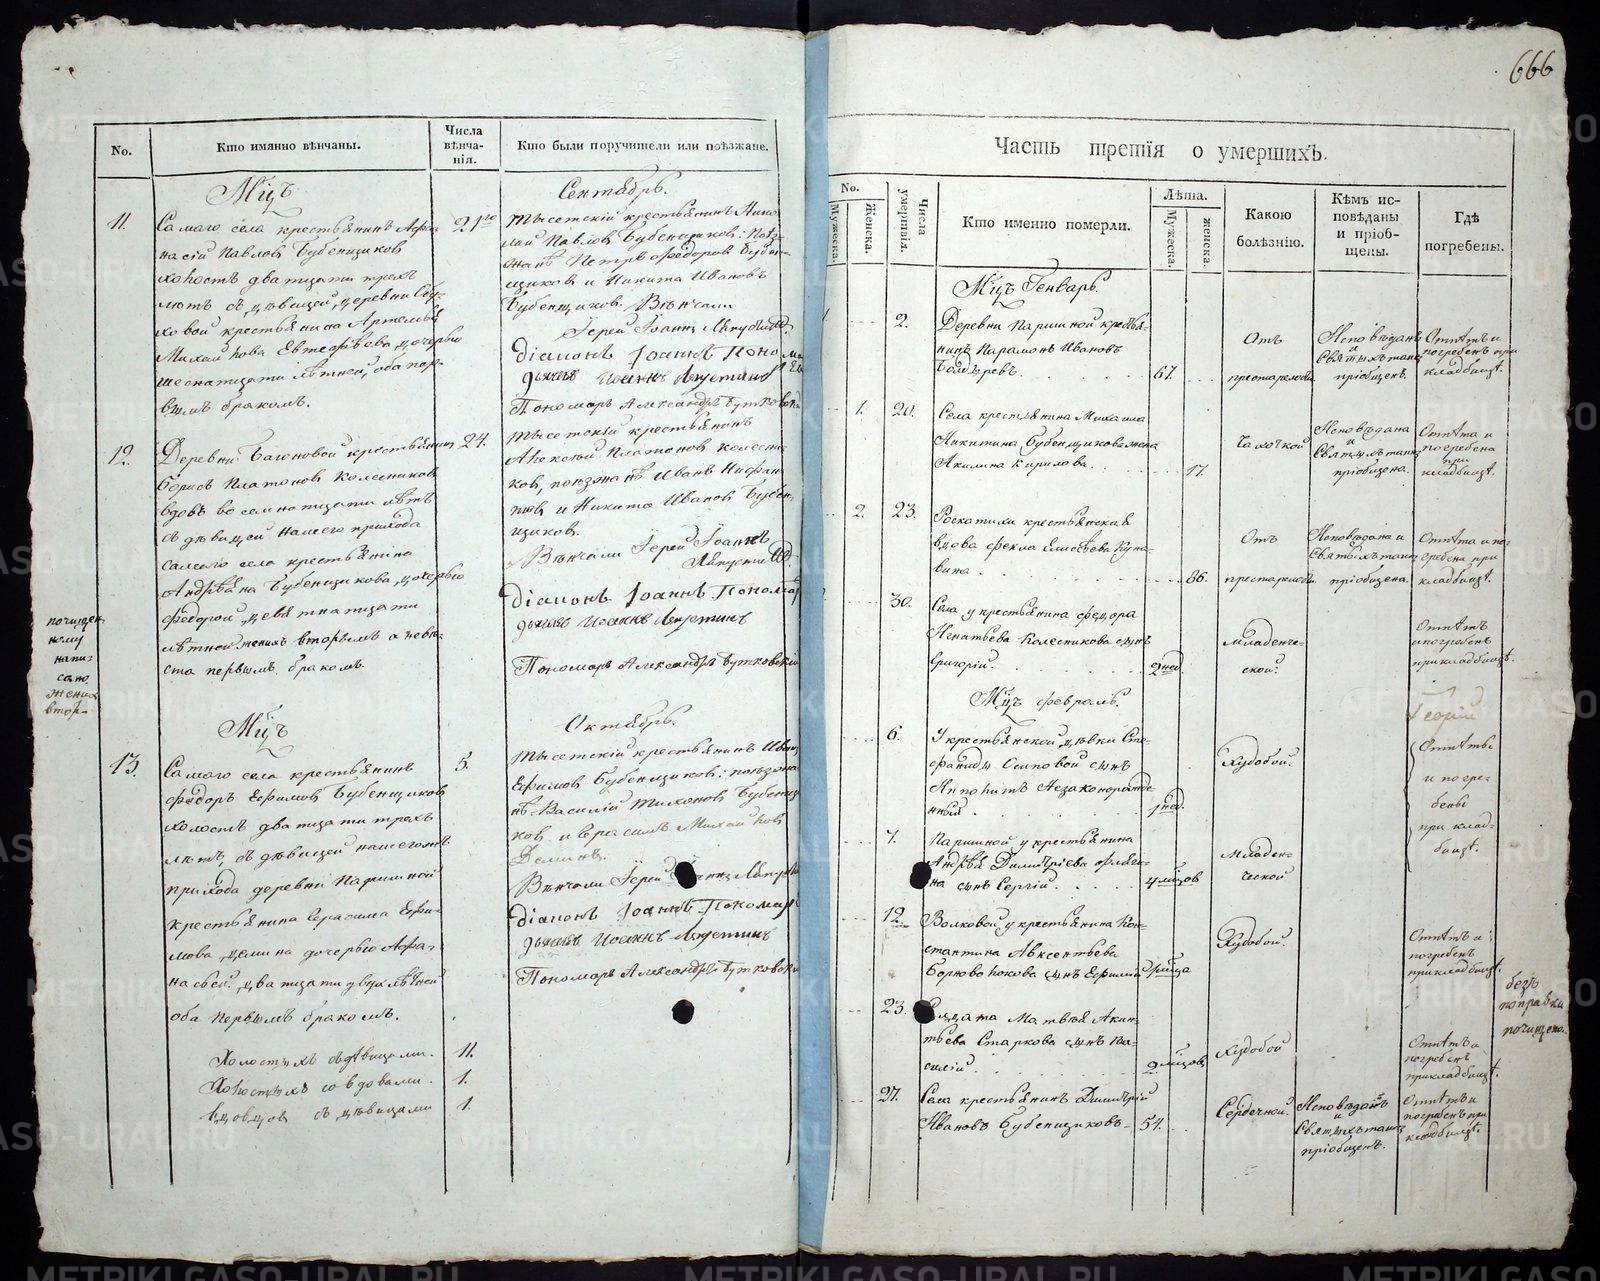 666
No.
Кто имянно вѣнчаны.
Числа вѣнча-нія.
Кто были поручители или поѣзжане.
Мцъ
Сентябрь.
11.
Самаго села крестьянинъ Афа-
насій Павловъ Бубенщиковъ
холостъ дватцати трехъ
лѣтъ съ дѣвицей, деревни
крестьянина Артемья
Михайлова дочерью
шеснатцати лѣтней, оба пер-
вымъ бракомъ.
21го
крестьянинъ Нико-
лай Павловъ Бубенщиковъ: поѣз-
жанѣ Петръ Федоровъ Бубен-
щиковъ и Никита Ивановъ
Бубенщиковъ. Вѣнчали
Іерей Іоаннъ
діаконъ Іоаннъ Поно
дьячекъ Иоаннъ
Пономарь Александръ Бутковскій
12.
Деревни крестьянинъ
Борисъ Платоновъ Колесниковъ
вдовъ восемнатцати лѣтъ
съ дѣвицей нашего прихода
самаго села крестьянина
Бубенщикова, дочерью
Федорой, девятнатцати
лѣтней женихъ вторымъ а невѣ-
ста первымъ бракомъ.
24.
крестьянинъ
Алексѣй Платоновъ Колесни-
ковъ, поѣзжанѣ Иванъ
и Никита Ивановъ Бубен-
щиковъ.
Вѣнчали Іерей Іоаннъ
діаконъ Іоаннъ Пономар
дьячекъ Иоаннъ
Пономарь Александръ Бутковскій
почищен
ному
напи-
сано
жених
втор-
Мцъ
Октябрь.
13.
Самаго села крестьянинъ
Федоръ Ефимовъ Бубенщиковъ
холостъ дватцати трехъ
лѣтъ, съ дѣвицей нашегожъ
прихода деревни Паршиной
крестьянина Герасима Ефи-
мова, Демина дочерью Афа-
насьей дватцати двухлѣтней
оба первымъ бракомъ.
5.
крестьянинъ Иван
Ефимовъ Бубенщиковъ: поѣзжа
нѣ Василій Тихоновъ Бубенщи
ковъ и Герасимъ Михайловъ
Деминъ.
Вѣнчали Іерей
діаконъ Іоаннъ Пономар
дьячекъ Иоаннъ
Пономарь Александръ Бутковскі
Холостыхъ съ дѣвицами. 11.
Холостыхъ со вдовами. 1.
Вдовцовъ съ дѣвицами 1.
Часть третія о умершихъ.
No.
Мужеска.
Женска.
Числа умертвія.
Кто именно померли.
Лѣта.
Мужеска.
женска.
Какою болѣзнію.
Кѣмъ ис-повѣданы и пріоб-щены.
Гдѣ погребены.
Мцъ Генварь.
2.
Деревни Паршиной кресть-
нинъ Парамонъ Ивановъ
67.
Отъ
престарелости
Исповѣданъ
и
Святыхъ таинъ
пріобщенъ.
Отпѣтъ и
погребенъ при
кладбищѣ.
1.
20.
Села крестьянина Михаила
Никитина Бубенщикова жена
Акилина Кирилова
17.
Чахоткой
Исповѣдана
и
Святыхъ таинъ
пріобщена.
Отпѣта и
погребена
при
кладбищѣ.
2.
23.
крестьянская
вдова Фекла Елисѣева
86.
Отъ
престарелости
Исповѣдана и
Святыхъ таинъ
пріобщена.
Отпѣта и по-
гребена при
кладбищѣ.
30.
Села у крестьянина Федора
Игнатьева Колесникова сынъ
Григорій.
2 нед.
Младенче-
ской.
Отпѣтъ
и погребенъ
при кладбищѣ.
Мцъ февраль.
6.
У крестьянской дѣвки Сте-
фаниды Осиповой сынъ
Ипполитъ Незаконорожде-
нный
1 нед.
Худобой.
Георгій
Отпѣты
и погре-
бены
при клад-
бищѣ.
7.
Паршиной у крестьянина
Андрѣя Димитріева
на сынъ Сергій.
4 мѣсцов
Младен-
ческой
12
Волковой у крестьянина Кон-
стантина Авксентьева
сынъ Ефимій
Худобой.
Отпѣтъ и
погребенъ
при кладбищѣ.
безъ
поправки
почищено.
23.
Матвѣя Акин-
тьева Старкова сынъ Ва-
силій
9 мѣсцовъ
Худобой
Отпѣтъ и
погребенъ
при кладбищѣ.
27.
Села крестьянинъ Димитрій
Ивановъ Бубенщиковъ
54.
Сердечной.
Исповѣданъ
и
Святыхъ таинъ
пріобщенъ.
Отпѣтъ и
погребенъ при
кладбищѣ.
METRIKI.GASO-URAL.RU